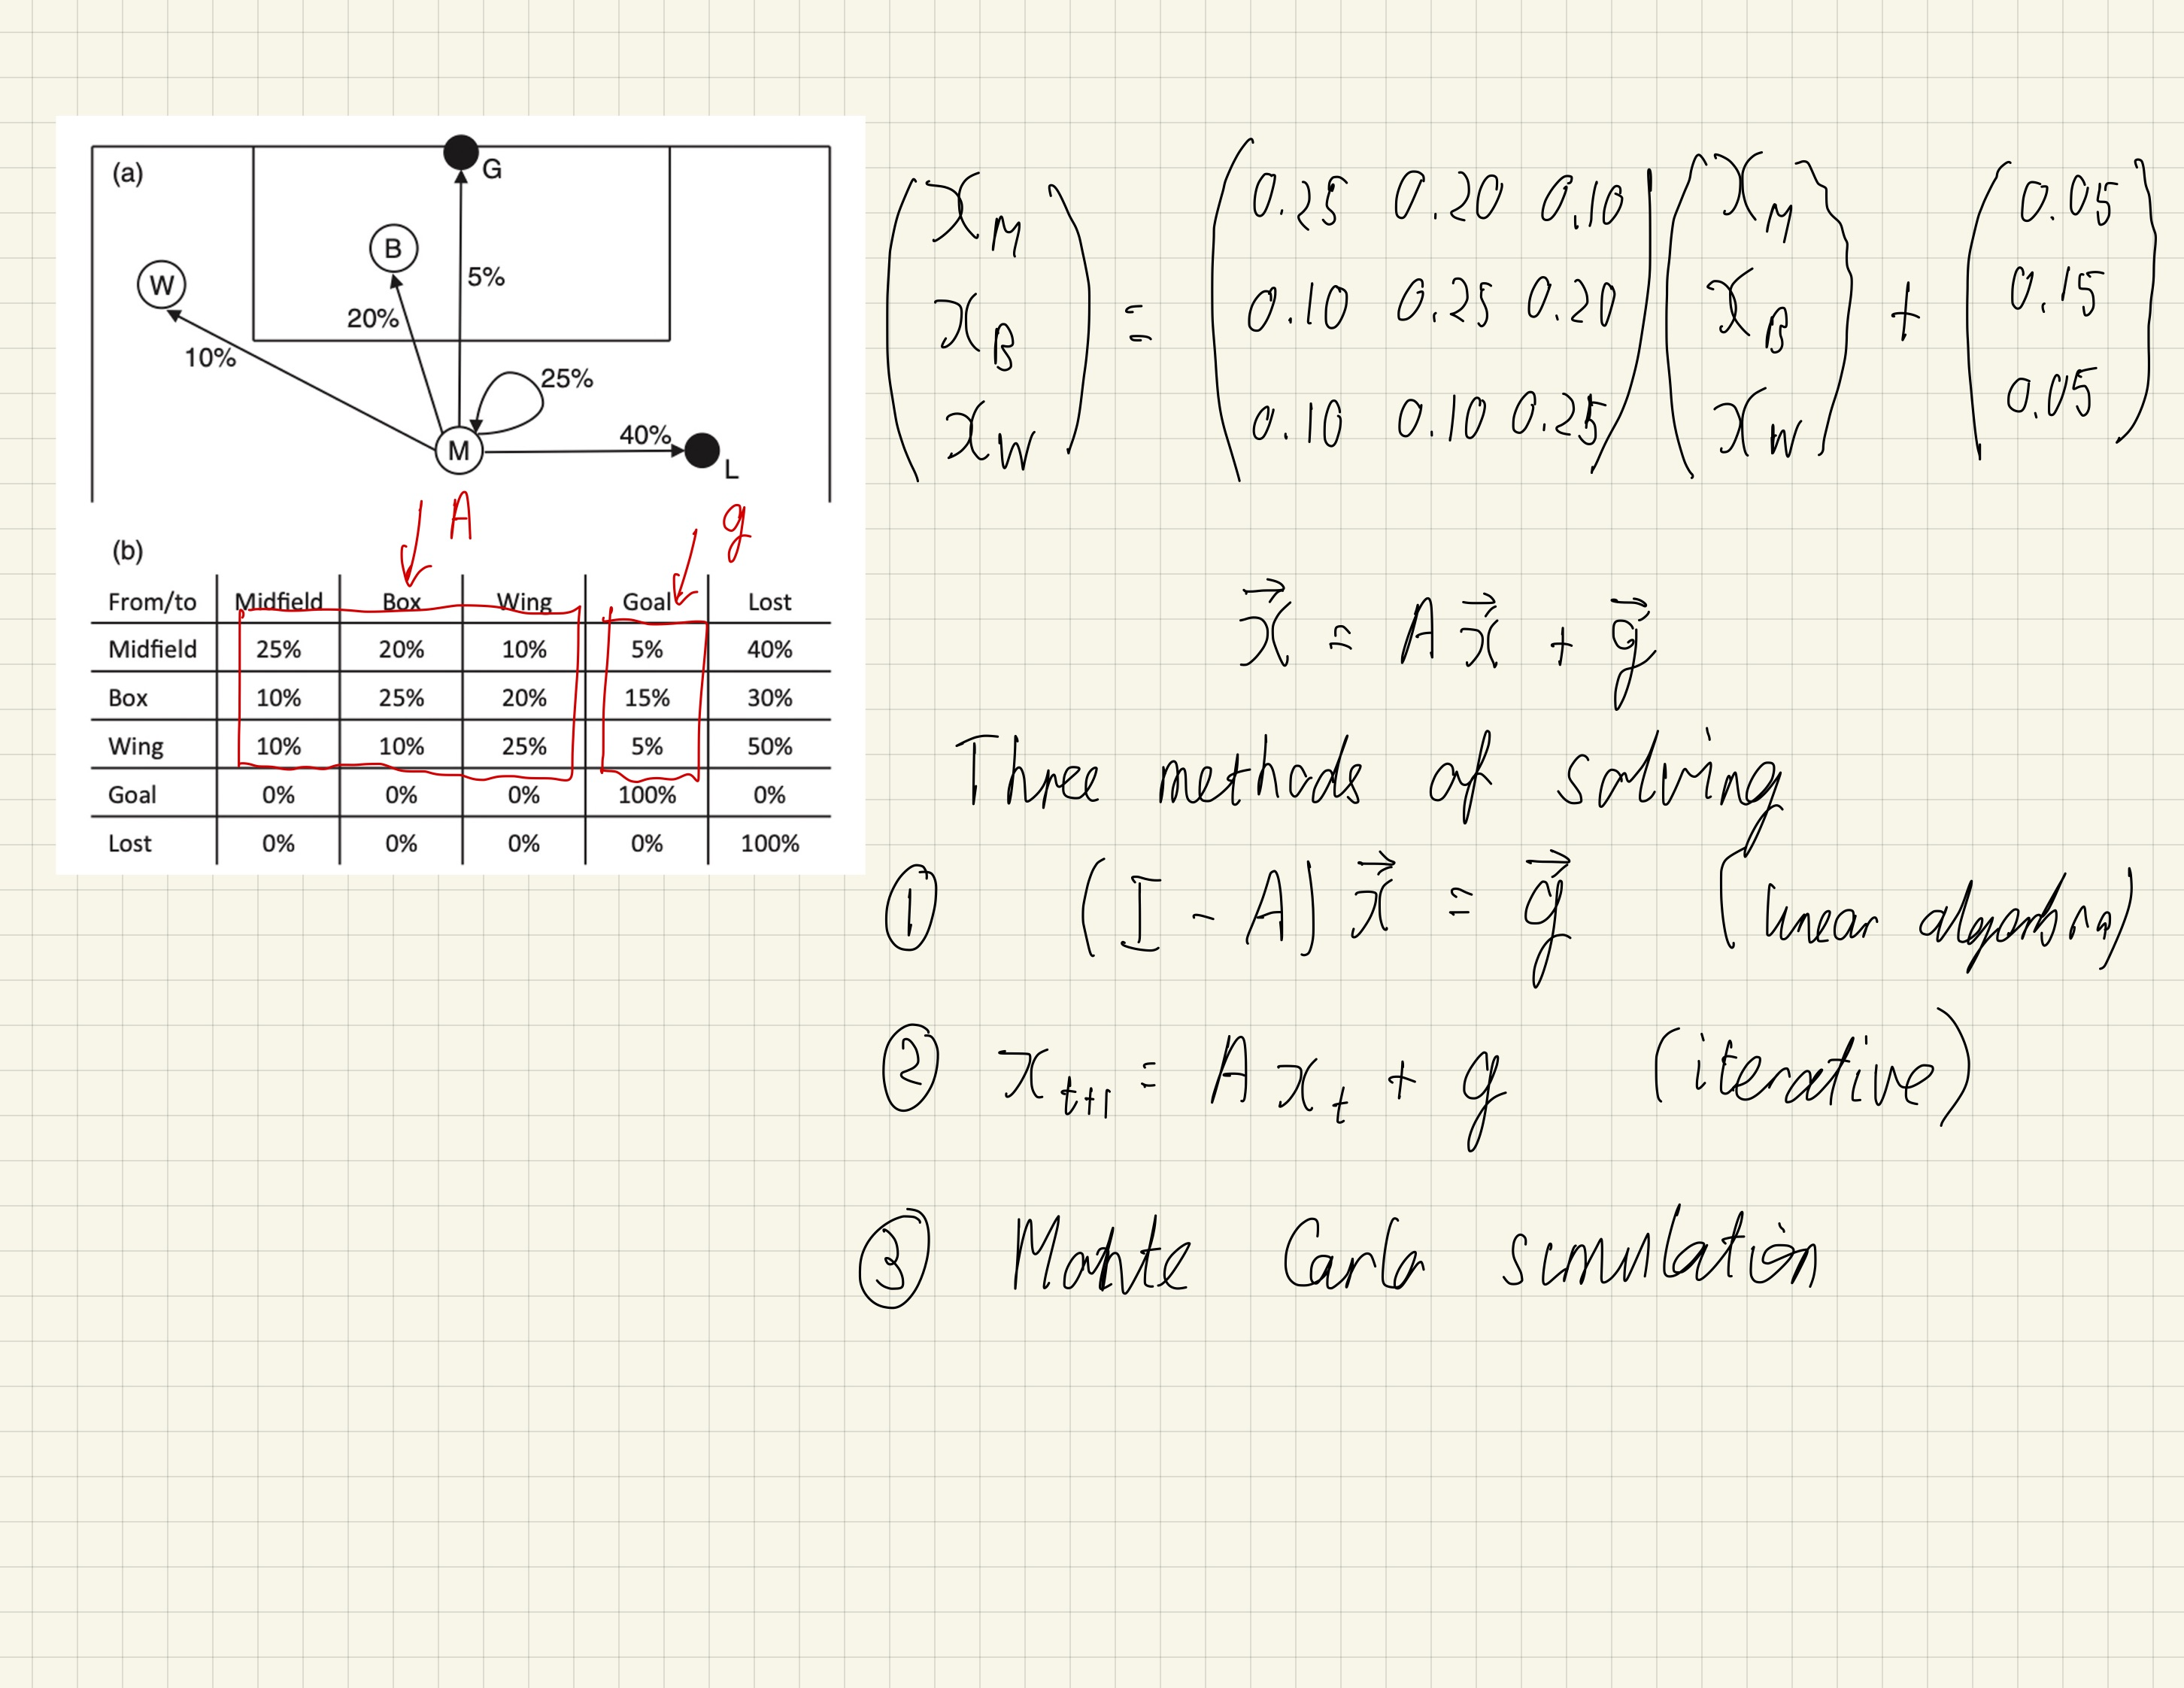 (a)
G
B
W
5%
20%
10%
25%
40%
M
L
A
g
(b)
From/to Midfield Box Wing Goal Lost
Midfield 25% 20% 10% 5% 40%
Box 10% 25% 20% 15% 30%
Wing 10% 10% 25% 5% 50%
Goal 0% 0% 0% 100% 0%
Lost 0% 0% 0% 0% 100%
(x_M) = (0.25 0.20 0.10) (x_M) + (0.05)
(x_B) (0.10 0.25 0.20) (x_B) (0.15)
(x_W) (0.10 0.10 0.25) (x_W) (0.05)
x⃗ = A x⃗ + g⃗
Three methods of solving
① (I - A) x⃗ = g⃗ (linear algebra)
② x_{t+1} = A x_t + g (iterative)
③ Monte Carlo simulation